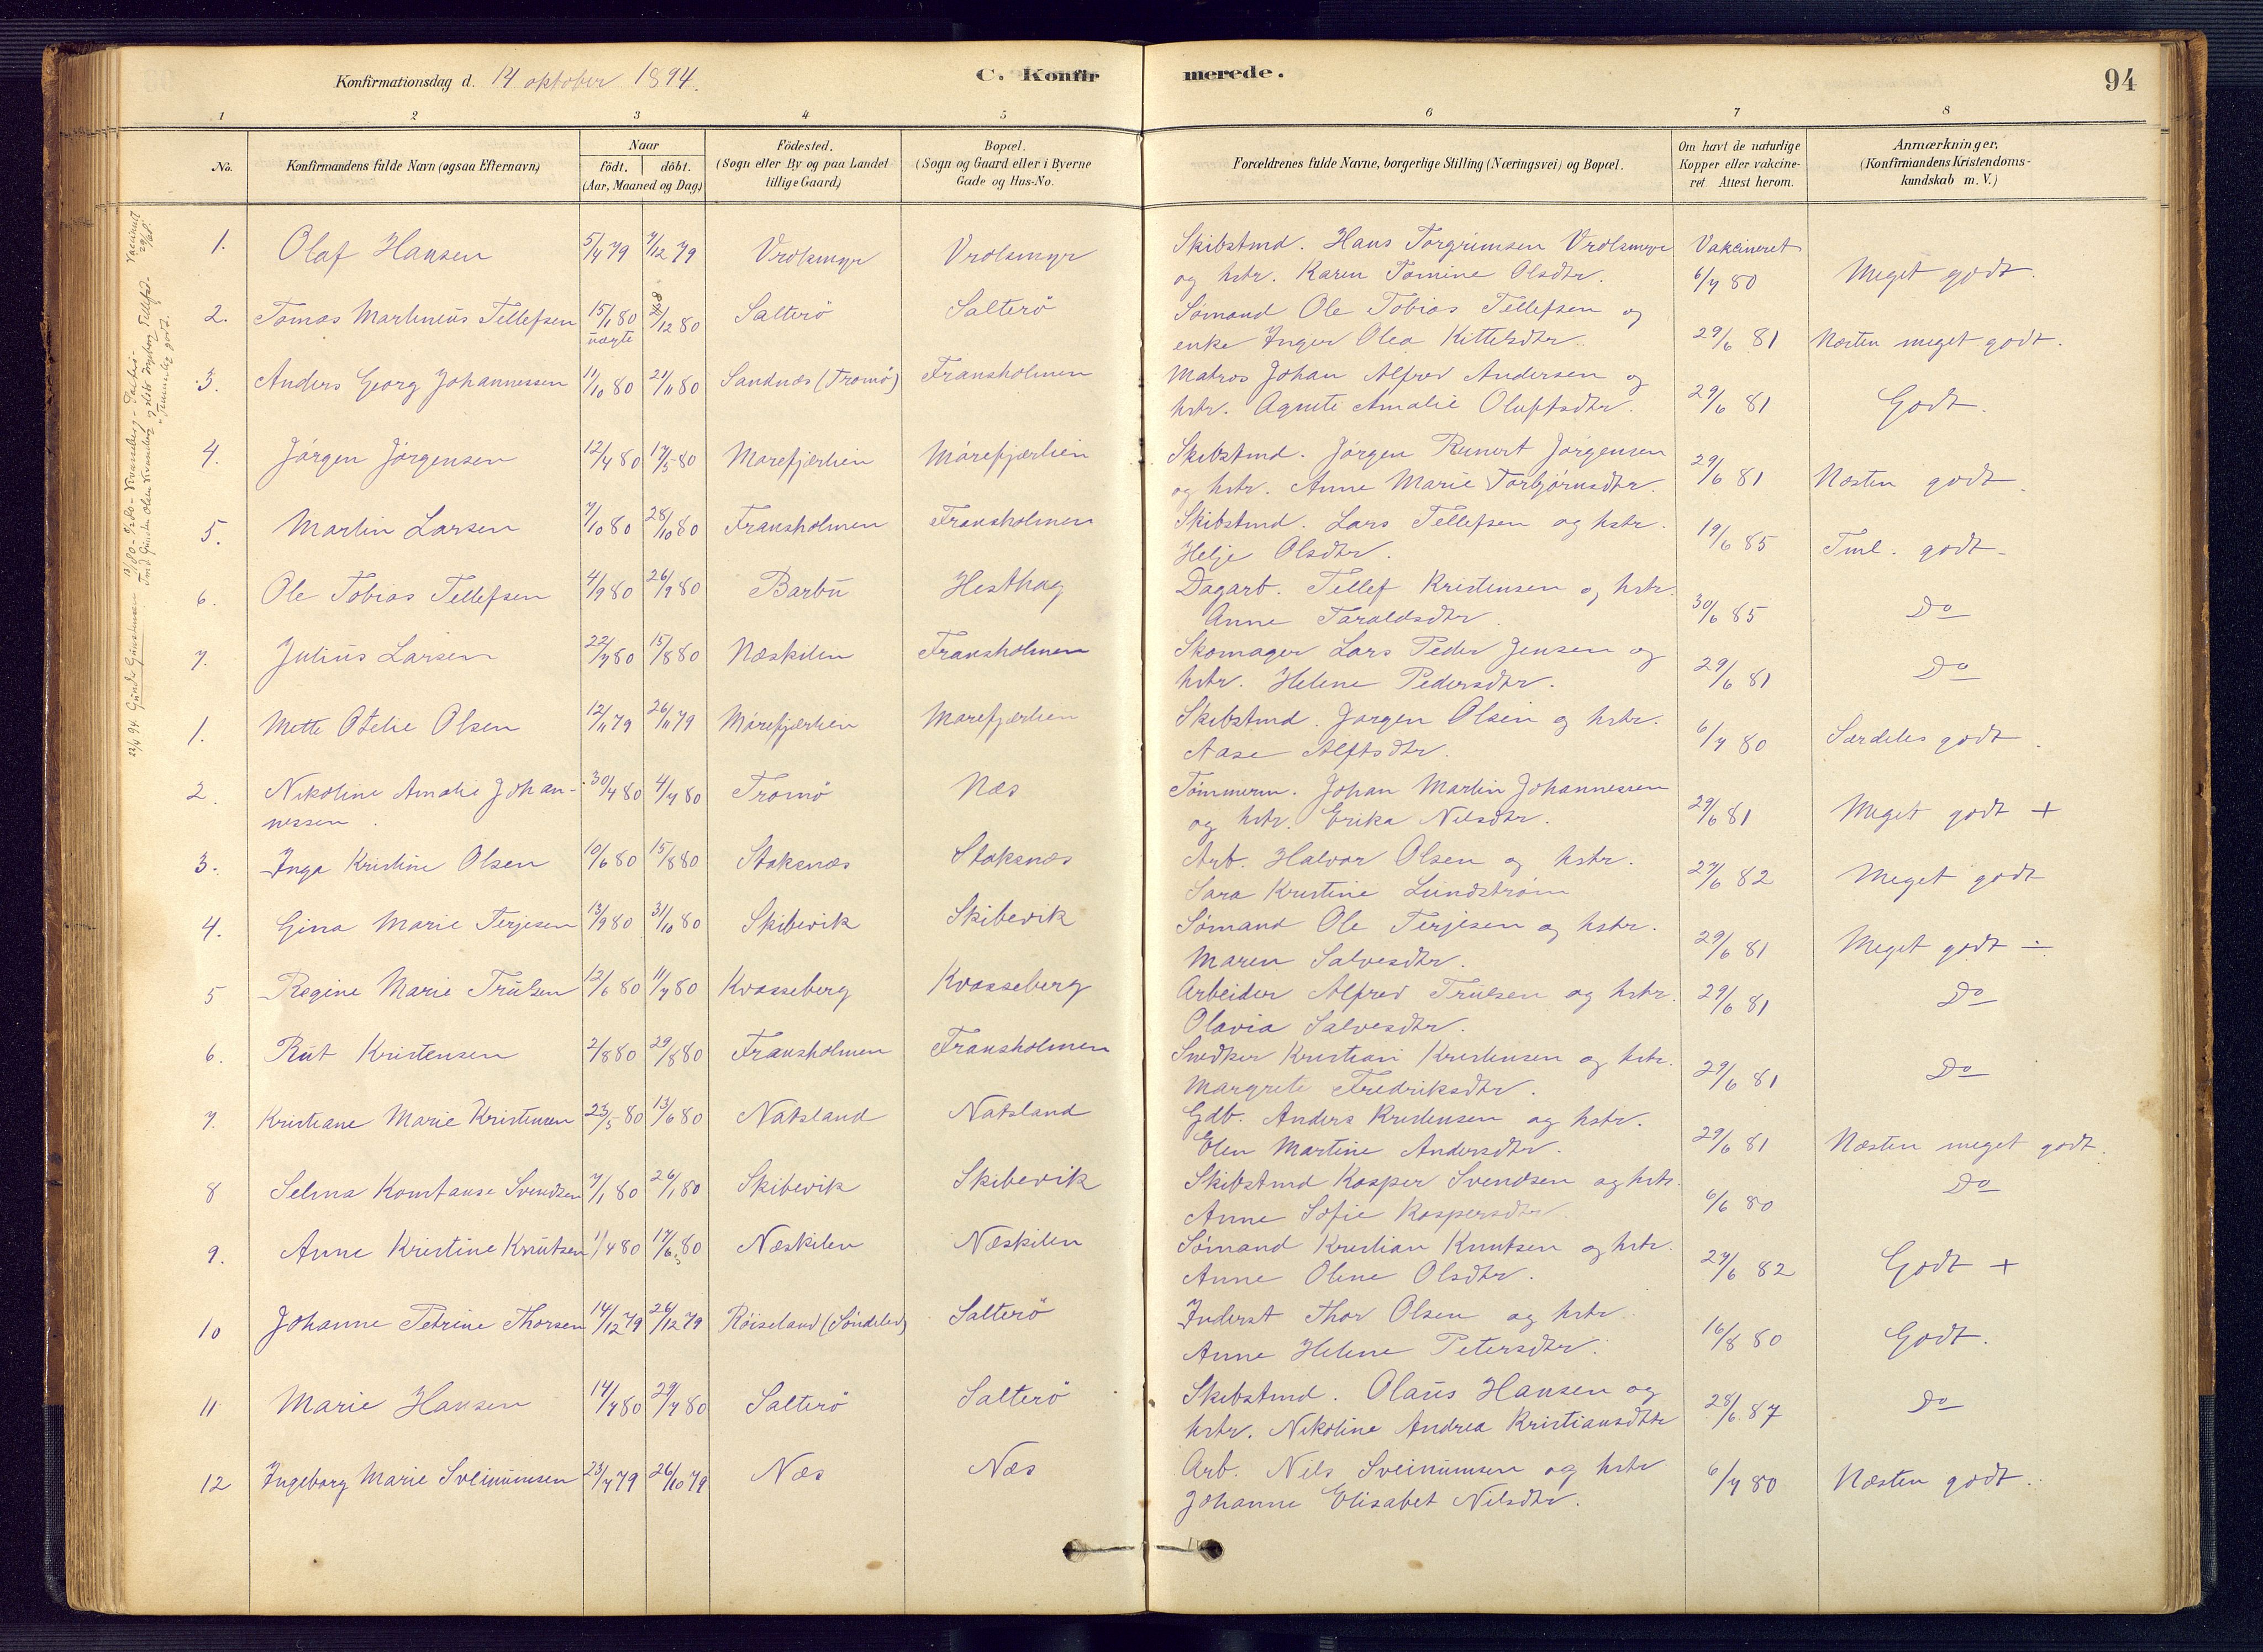 Konfirmationsdag d. 14 oktober 1894.
C. Konfirmerede.
94
1 2 3 4 5 6 7 8
No.
Konfirmandens fulde Navn (ogsaa Efternavn)
Naar
födt. döbt.
(Aar, Maaned og Dag)
Födested.
(Sogn eller By og paa Landet
tillige Gaard)
Bopæl.
(Sogn og Gaard eller i Byerne
Gade og Hus-No.
Forældrenes fulde Navne, borgerlige Stilling (Næringsvei) og Bopæl.
Om havt de naturlige
Kopper eller vakcine-
ret Attest herom.
Anmærkninger,
(Konfirmandens Kristendoms-
kundskab m. V.)
1. Olaf Hansen 5/4 79 7/12 79 Vrolsmyr Vrolsmyr Skibstmd. Hans Torgrimsen Vrolsmyr Vakcineret
og hstr. Karen Tomine Olsdtr. 6/7 80 Meget godt.
2. Tomas Martineus Tellefsen 15/1 80 /12 80 Salterö Salterö Sømand Ole Tobias Tellefsen og
uægte enke Inger Olea Kittelsdtr. 29/6 81 Næsten meget godt.
3. Anders Georg Johannessen 11/10 80 21/11 80 Sandnæs (Tromö) Fransholmen Matros Johan Alfred Andersen og
hstr. Agnete Amalie Oluffsdtr. 29/6 81 Godt.
4. Jørgen Jørgensen 12/4 80 17/5 80 Mørefjærlien Mørefjærlien Skibstmd. Jørgen Reinert Jørgensen
og hstr. Anne Marie Torbjørnsdtr. 29/6 81 Næsten godt.
5. Martin Larsen 7/10 80 28/10 80 Fransholmen Fransholmen Skibstmd. Lars Tellefsen og hstr.
Helje Olsdtr. 19/6 85 Tml. godt
6. Ole Tobias Tellefsen 4/9 80 26/9 80 Barbu Hesthag Dagarb. Tellef Kristensen og hstr.
Anne Taraldsdtr. 30/6 85 Do
7. Julius Larsen 22/7 80 15/8 80 Næskilen Fransholmen Skomager Lars Peder Jensen og
hstr. Helene Pedersdtr. 29/6 81 Do
1. Mette Otelie Olsen 12/11 79 26/11 79 Mørefjærlien Mørefjærlien Skibstmd. Jørgen Olsen og hstr.
Aase Alfsdtr. 6/7 80 Særdeles godt.
2. Nikoline Amalie Johan- 30/4 80 4/7 80 Tromö Næs Tömmerm. Johan Martin Johannessen
nessen. og hstr. Erika Nilsdtr. 29/6 81 Meget godt +
3. Inga Kristine Olsen 10/6 80 15/8 80 Stoksnæs Stoksnæs Arb. Halvor Olsen og hstr.
Sara Kristine Lundstrøm 27/6 82 Meget godt
4. Gina Marie Terjesen 13/9 80 31/10 80 Skibevik Skibevik Sømand Ole Terjesen og hstr.
Maren Salvesdtr. 29/6 81 Meget godt ÷
5 Regine Marie Trulsen 12/6 80 11/7 80 Kvasseberg Kvasseberg Arbeider Alfred Trulsen og hstr.
Olavia Salvesdtr. 29/6 81 Do
6. Rut Kristensen 2/8 80 29/8 80 Fransholmen Fransholmen Snedker Kristian Kristensen og hstr.
Margrete Fredriksdtr. 29/6 81 Do
7. Kristiane Marie Kristensen 23/5 80 13/6 80 Natsland Natsland Gdb. Anders Kristensen og hstr.
Elen Martine Andersdtr. 29/6 81 Næsten meget godt.
8 Selma Konstanse Svendsen 7/1 80 26/1 80 Skibevik Skibevik Skibstmd Kasper Svendsen og hstr.
Anne Sofie Kaspersdtr. 6/6 80 Do
9. Anne Kristine Knutsen 1/4 80 17/6 80 Næskilen Næskilen Sømand Kristian Knutsen og hstr.
Anne Oline Olsdtr. 27/6 82 Godt +
10 Johanne Petrine Thorsen 14/12 79 26/12 79 Röiseland (Söndeled) Salterö Inderst Thor Olsen og hstr
Anne Helene Petersdtr. 16/8 80 Godt.
11 Marie Hansen 14/7 80 29/7 80 Salterö Salterö Skibstmd. Olaus Hansen og
hstr. Nikoline Andrea Kristiansdtr 28/6 87 Do
12 Ingeborg Marie Sveinumsen 23/7 79 26/10 79 Næs Næs Arb. Nils Sveinumsen og hstr
Johanne Elisabet Nilsdtr. 6/7 80 Næsten godt.